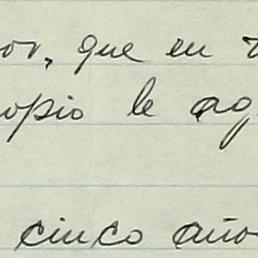 or, que en
opio le ag
cinco año